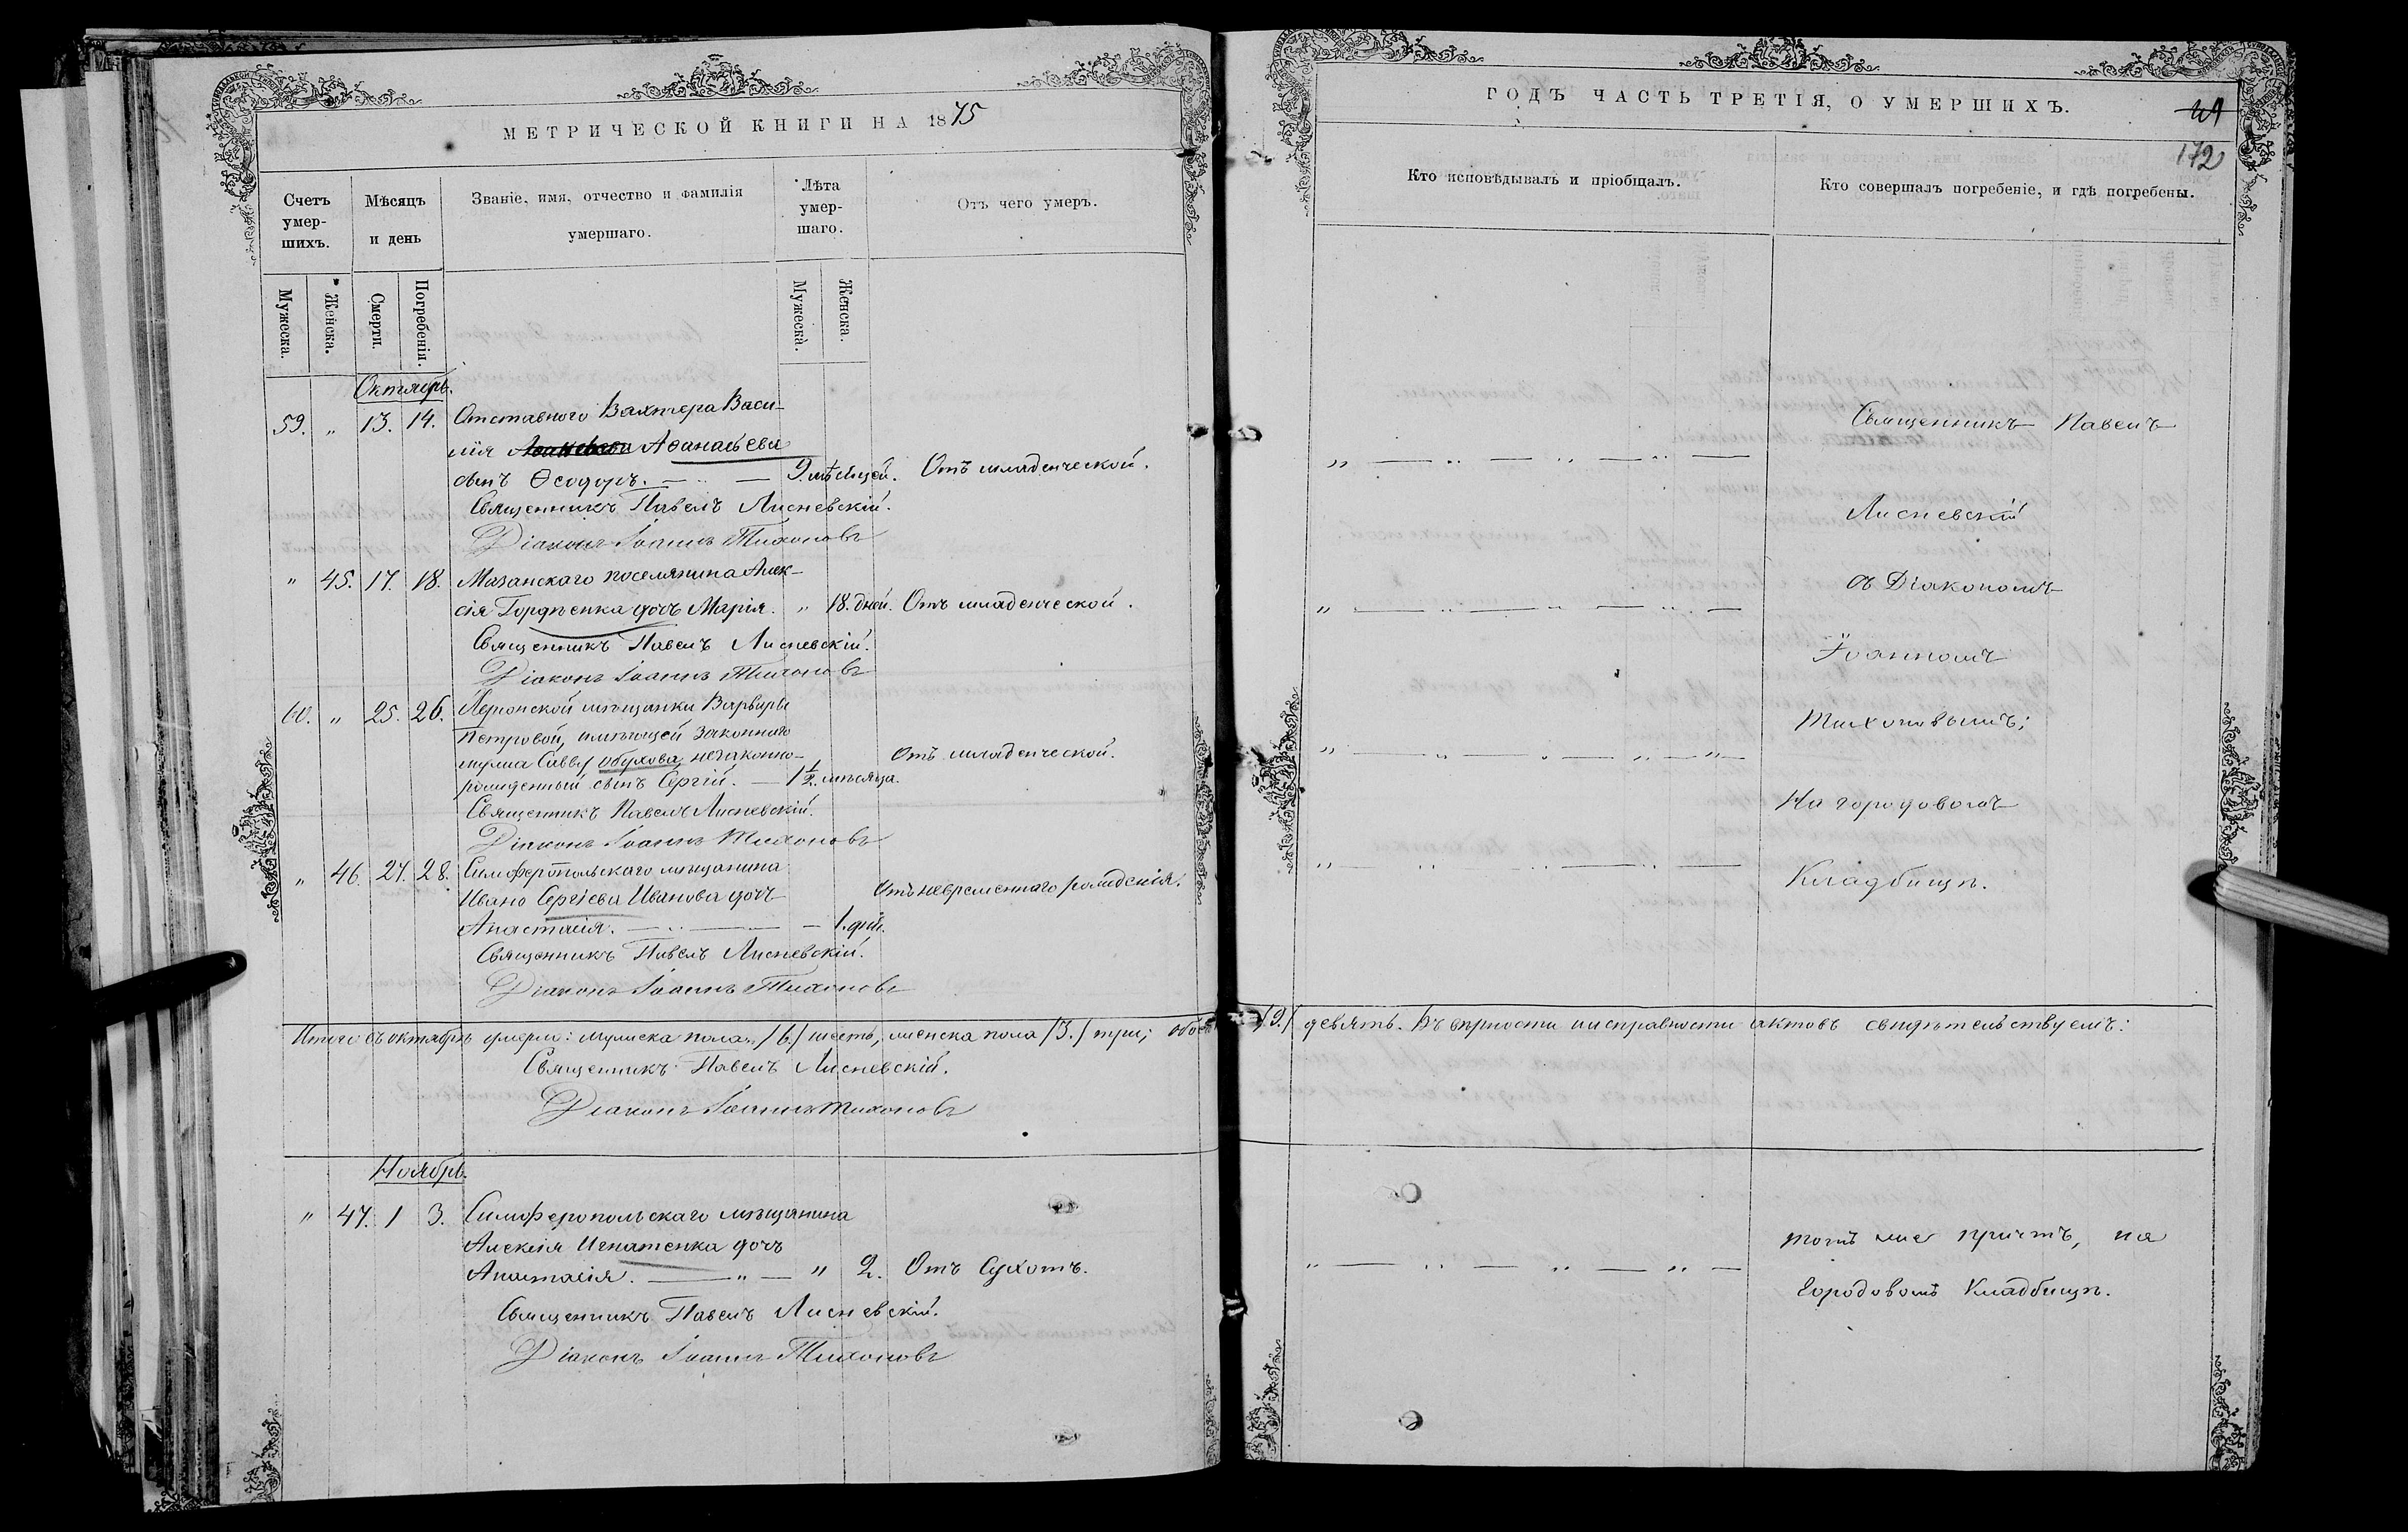 МЕТРИЧЕСКОЙ КНИГИ НА 1875
Счетъ умер-шихъ.
Мѣсяцъ и день
Званіе, имя, отчество и фамилія умершаго.
Лѣта умер-шаго.
Отъ чего умеръ.
Мужеска.
Женска.
Смерти.
Погребенія.
Мужеска.
Женска.
Октябрь.
59. „ 13. 14. Отставного Вахтера Васи-
лія Аѳанасьева
сынъ Ѳеодоръ. 9. мѣсяцей. Отъ младенческой.
Священникъ Павелъ Лисневскій.
Діаконъ Іоаннъ Тихоновъ
„ 45. 17. 18. Мазанскаго поселянина Алек-
сія Гордѣенка дочь Марія. „ 18. дней. Отъ младенческой.
Священникъ Павелъ Лисневскій.
Діаконъ Іоаннъ Тихоновъ
60. „ 25. 26. мѣщанки Варвары
Петровой, имѣющей законного
мужа Савву Обухова, незаконно-
рожденный сынъ Сергій. — 1½ мѣсяца. Отъ младенческой.
Священникъ Павелъ Лисневскій.
Діаконъ Іоаннъ Тихоновъ
„ 46. 27. 28. Симферопольскаго мѣщанина
Ивана Сергіева Иванова дочь
Анастасія. — 1. дня. Отъ невременнаго рожденія.
Священникъ Павелъ Лисневскій.
Діаконъ Іоаннъ Тихоновъ
Итого въ октябрѣ умерли: мужеска пола /6./ шесть, женска пола /3./ три; обоего
Священникъ Павелъ Лисневскій.
Діаконъ Іоаннъ Тихоновъ
Ноябрь.
„ 47. 1 3. Симферопольскаго мѣщанина
Алексія Игнатенка дочь
Анастасія. „ 2. Отъ Сухотъ.
Священникъ Павелъ Лисневскій.
Діаконъ Іоаннъ Тихоновъ
ГОДЪ ЧАСТЬ ТРЕТІЯ, О УМЕРШИХЪ.
172
Кто исповѣдывалъ и пріобщалъ.
Кто совершалъ погребеніе, и гдѣ погребены.
Священникъ Павелъ
Лисневскій
съ Діакономъ
Іоанномъ
Тихоновымъ;
На городовомъ
Кладбищѣ.
/9./ девять. Въ вѣрности и исправности актовъ свидѣтельствуемъ:
тотъ же причтъ, на
городовомъ Кладбищѣ.